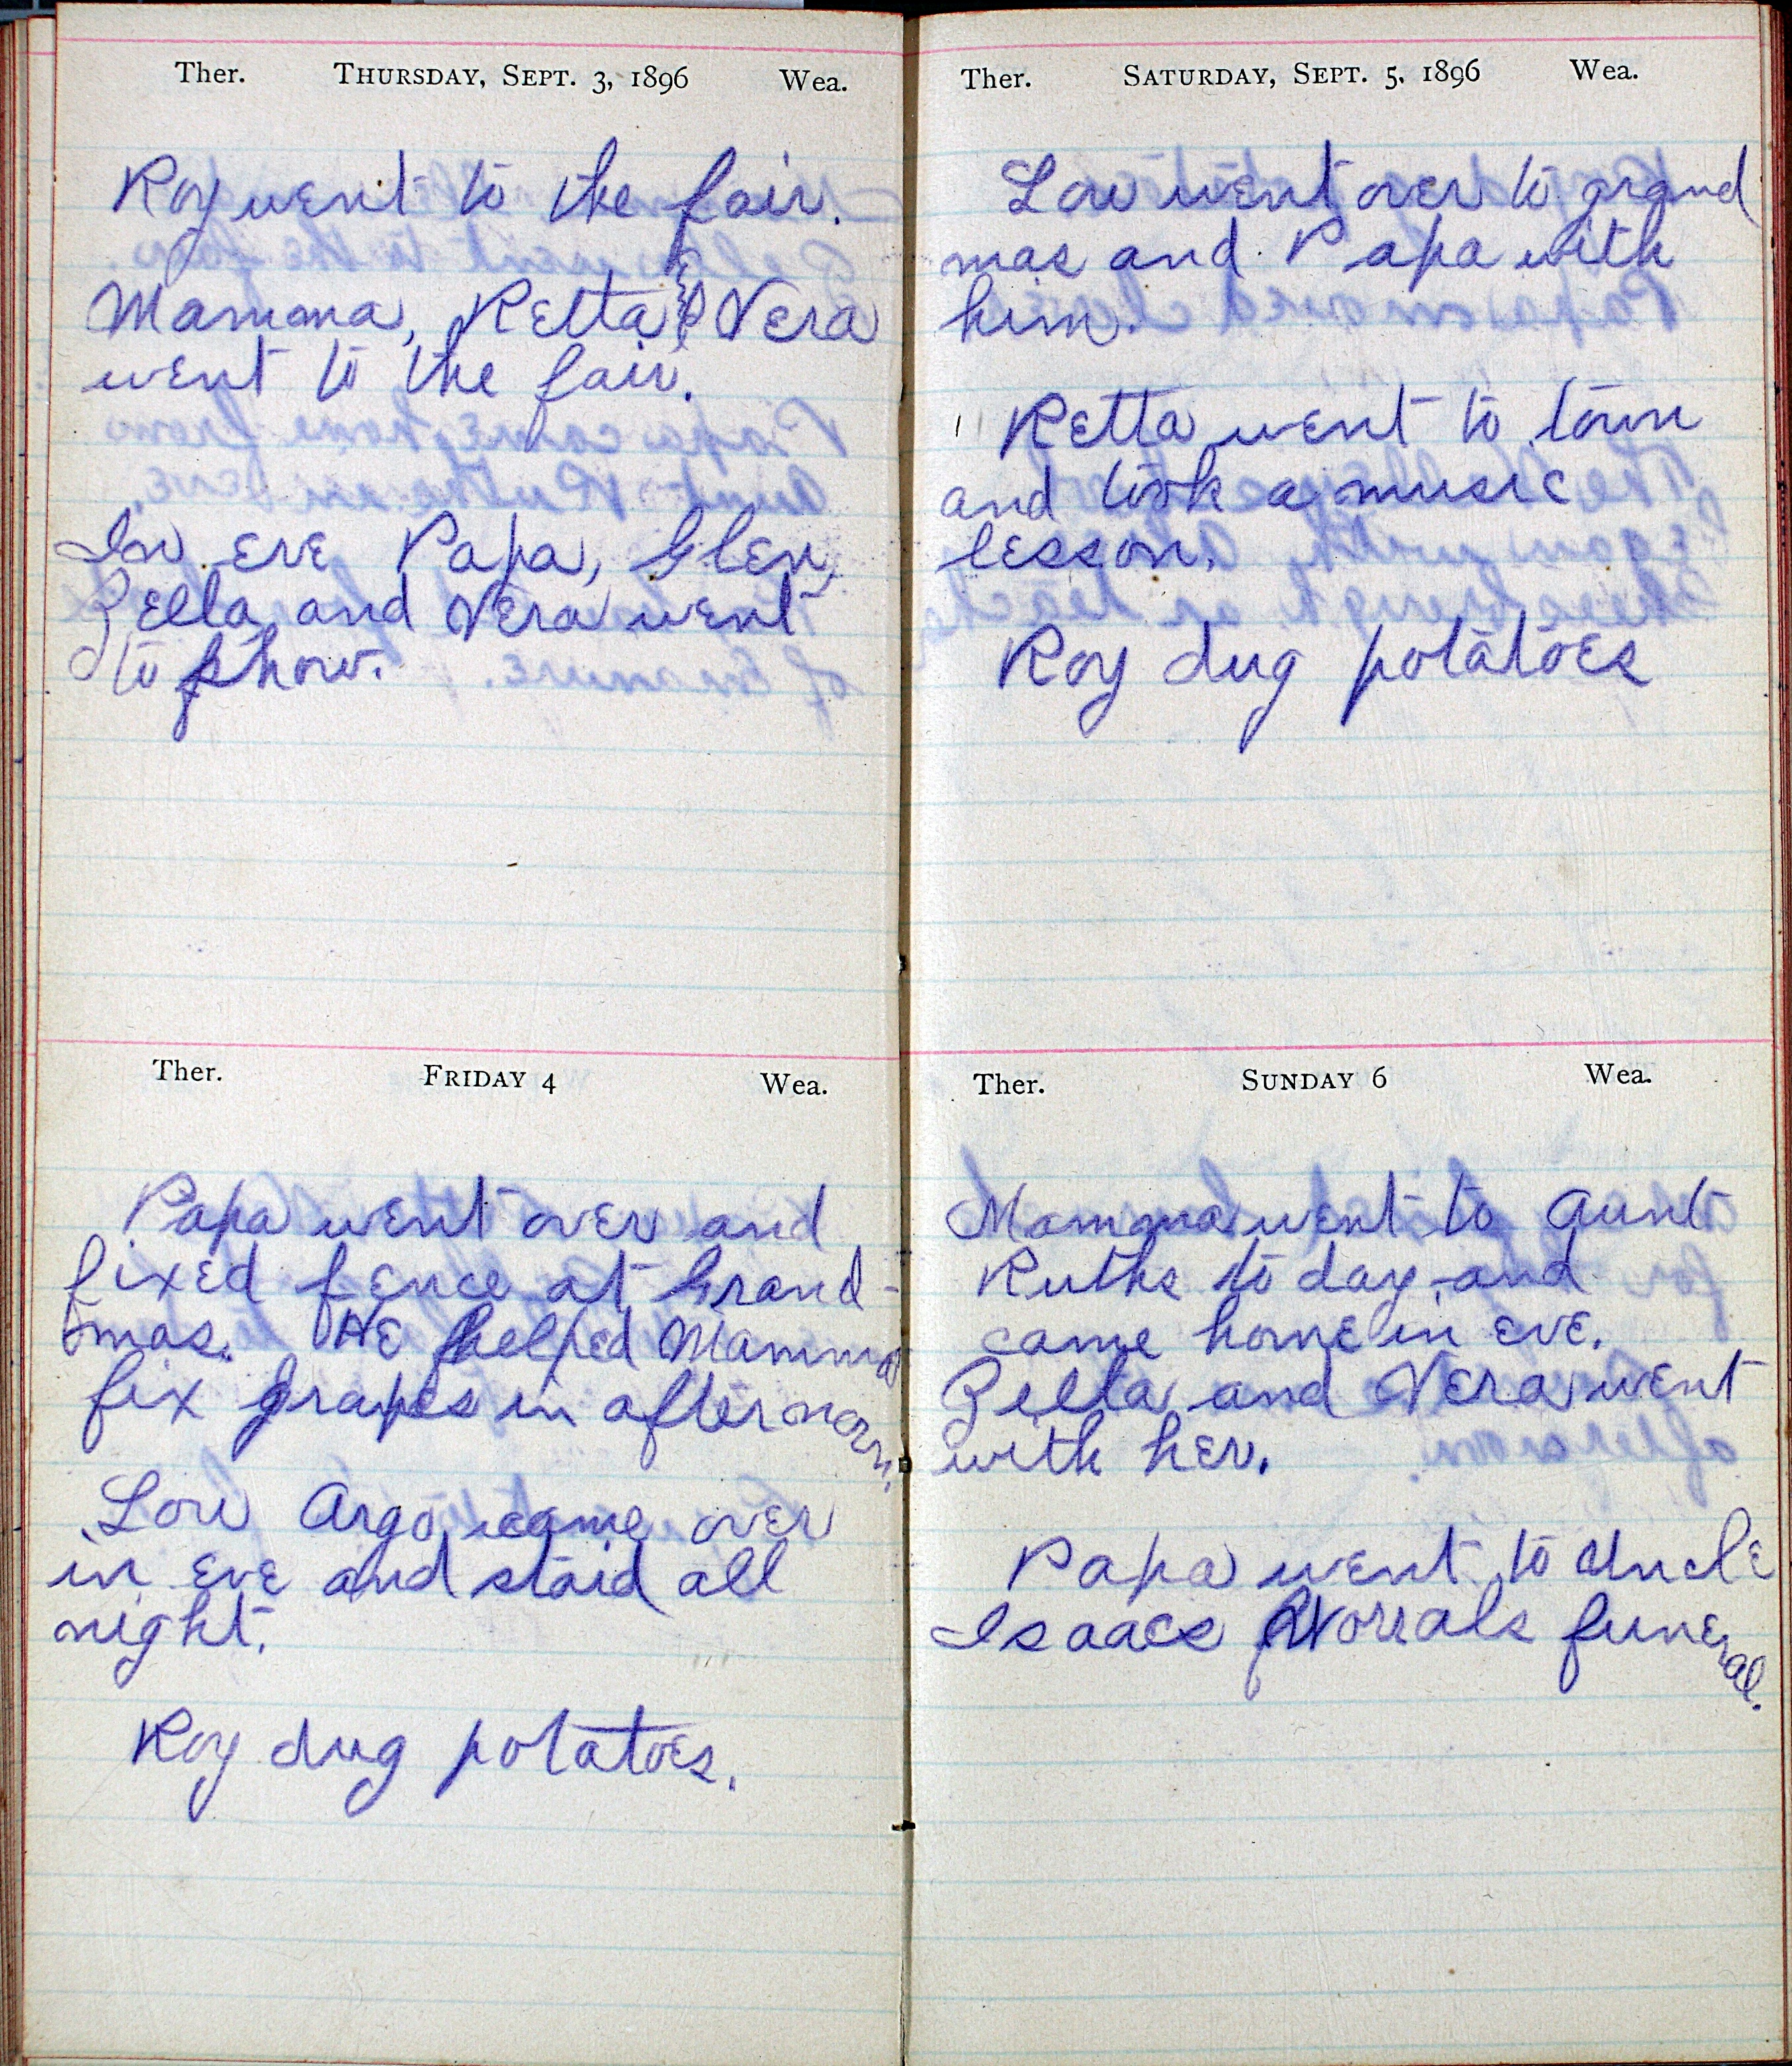 Ther. THURSDAY, SEPT. 3, 1896 Wea.
Roy went to the fair.
Mamma, Retta & Vera
went to the fair.
In eve Papa, Glen,
Zella and Vera went
to show.
Ther. FRIDAY 4 Wea.
Papa went over and
fixed fence at Grand-
mas. He helped Mamma
fix grapes in afternoon.
Lou Argo came over
in eve and staid all
night.
Roy dug potatoes.
Ther. SATURDAY, SEPT. 5, 1896 Wea.
Lou went over to grand
mas and Papa with
him.
Retta went to town
and took a music
lesson.
Roy dug potatoes
Ther. SUNDAY 6 Wea.
Mamma went to Aunt
Ruths to day and
came home in eve.
Zella and Vera went
with her.
Papa went to Uncle
Isaacs Worrals funeral.